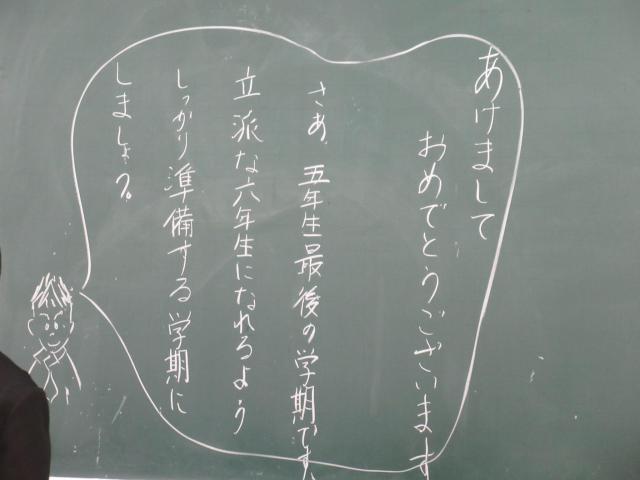 あけまして
おめでとうございます
さあ、五年生最後の学期です。
立派な六年生になれるよう
しっかり準備する学期に
しましょう。